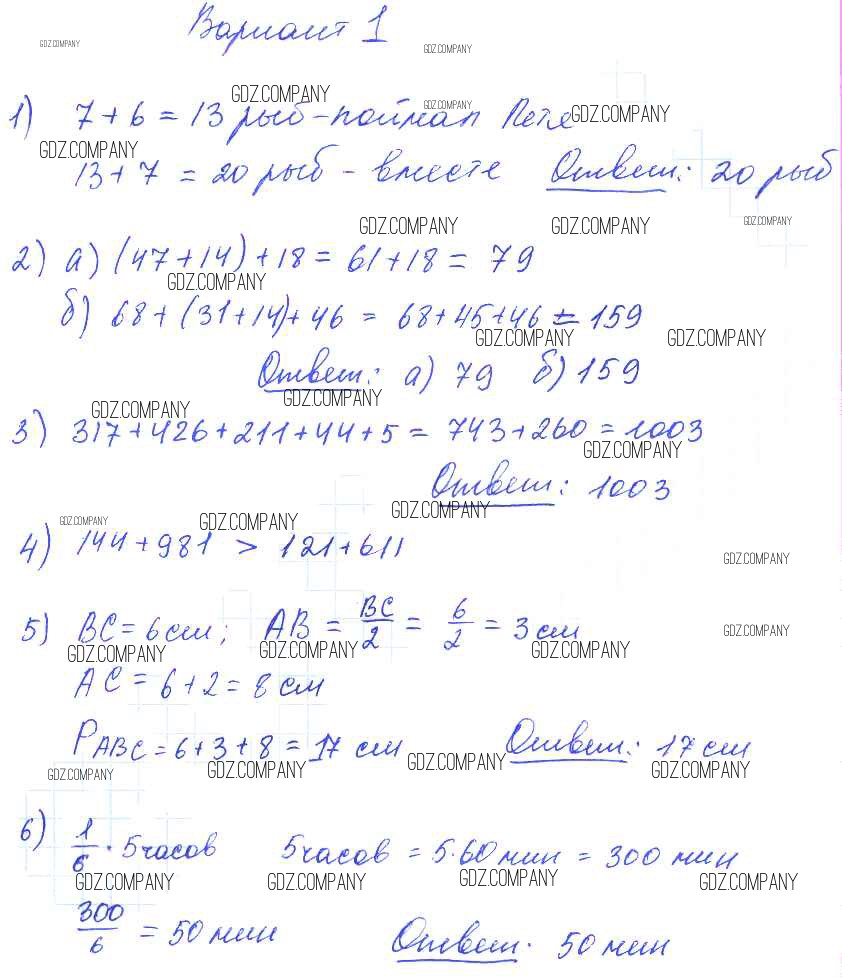 Вариант 1
GDZ.COMPANY GDZ.COMPANY
GDZ.COMPANY GDZ.COMPANY
1) 7 + 6 = 13 рыб - поймал Петя GDZ.COMPANY
GDZ.COMPANY
13 + 7 = 20 рыб - вместе Ответ: 20 рыб
GDZ.COMPANY GDZ.COMPANY GDZ.COMPANY
2) а) (47 + 14) + 18 = 61 + 18 = 79
GDZ.COMPANY
б) 68 + (31 + 14) + 46 = 68 + 45 + 46 = 159
GDZ.COMPANY GDZ.COMPANY
Ответ: а) 79 б) 159
GDZ.COMPANY GDZ.COMPANY
3) 317 + 426 + 211 + 44 + 5 = 743 + 260 = 1003
GDZ.COMPANY
Ответ: 1003
GDZ.COMPANY GDZ.COMPANY GDZ.COMPANY
4) 144 + 981 > 121 + 611
GDZ.COMPANY
5) BC = 6 см; AB = BC/2 = 6/2 = 3 см
GDZ.COMPANY
GDZ.COMPANY GDZ.COMPANY GDZ.COMPANY
AC = 6 + 2 = 8 см
PABC = 6 + 3 + 8 = 17 см Ответ: 17 см
GDZ.COMPANY GDZ.COMPANY GDZ.COMPANY GDZ.COMPANY
6) 1/6 · 5 часов 5 часов = 5 · 60 мин = 300 мин
GDZ.COMPANY GDZ.COMPANY GDZ.COMPANY GDZ.COMPANY
300/6 = 50 мин Ответ. 50 мин